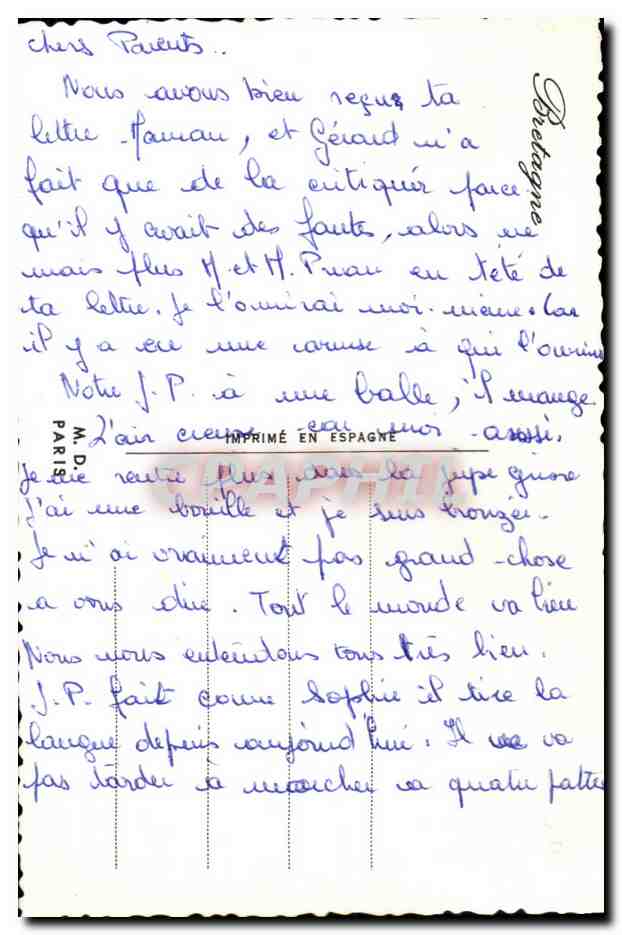 chers Parents..
Nous avons bien reçus ta
lettre Maman, et Gérard n'a
fait que de la critiquér parce
qu'il y avait des fautes, alors ne
mais plus M. et M. en tété de
ta lettre. Je l'ouvrirai moi-même. Car
il y a eu une à qui l'ouvrira
Notre J.P. à une balle, il mange
L'air creuse moi aussi.
Je ne rentre plus dans la jupe grise
J'ai une bouille et je suis bronzée.
Je n'ai vraiment pas grand-chose
a vous dire. Tout le monde va bien
Nous nous entendons tous très bien.
J.P. fait comme Sophie il tire la
langue depuis aujourd'hui. Il va
pas tarder à marcher a quatre pattes
Bretagne
M. D.
PARIS
IMPRIMÉ EN ESPAGNE
CPAPHIL